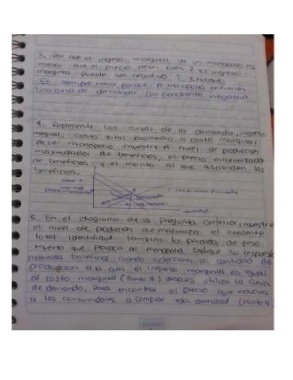 3. Por que el ingreso marginal de un monopolio es
menor que el precio de un bien? El ingreso
marginal puede ser negativo? Explique.
Es siempre menor porque el monopolio enfrenta
una curva de demanda con pendiente negativa
4. Represente las curvas de la demanda, ingreso
marginal, costo total promedio y costo marginal
de un monopolio muestre el nivel de producción
maximizador de beneficios, el precio maximizador
de beneficios y el monto al que ascienden los
beneficios.
5. En el diagrama de la pregunta anterior muestre
el nivel de producción que maximiza el excedente
total identifique también la pérdida de peso
muerto que provoca el monopolio. Explique su respuesta
maximiza beneficios cuando selecciona la cantidad de
producción a la cual el ingreso marginal es igual
al costo marginal (Punto A) después utiliza la curva
de demanda, para encontrar el precio que induzca
a los consumidores a comprar esa cantidad (punto B)